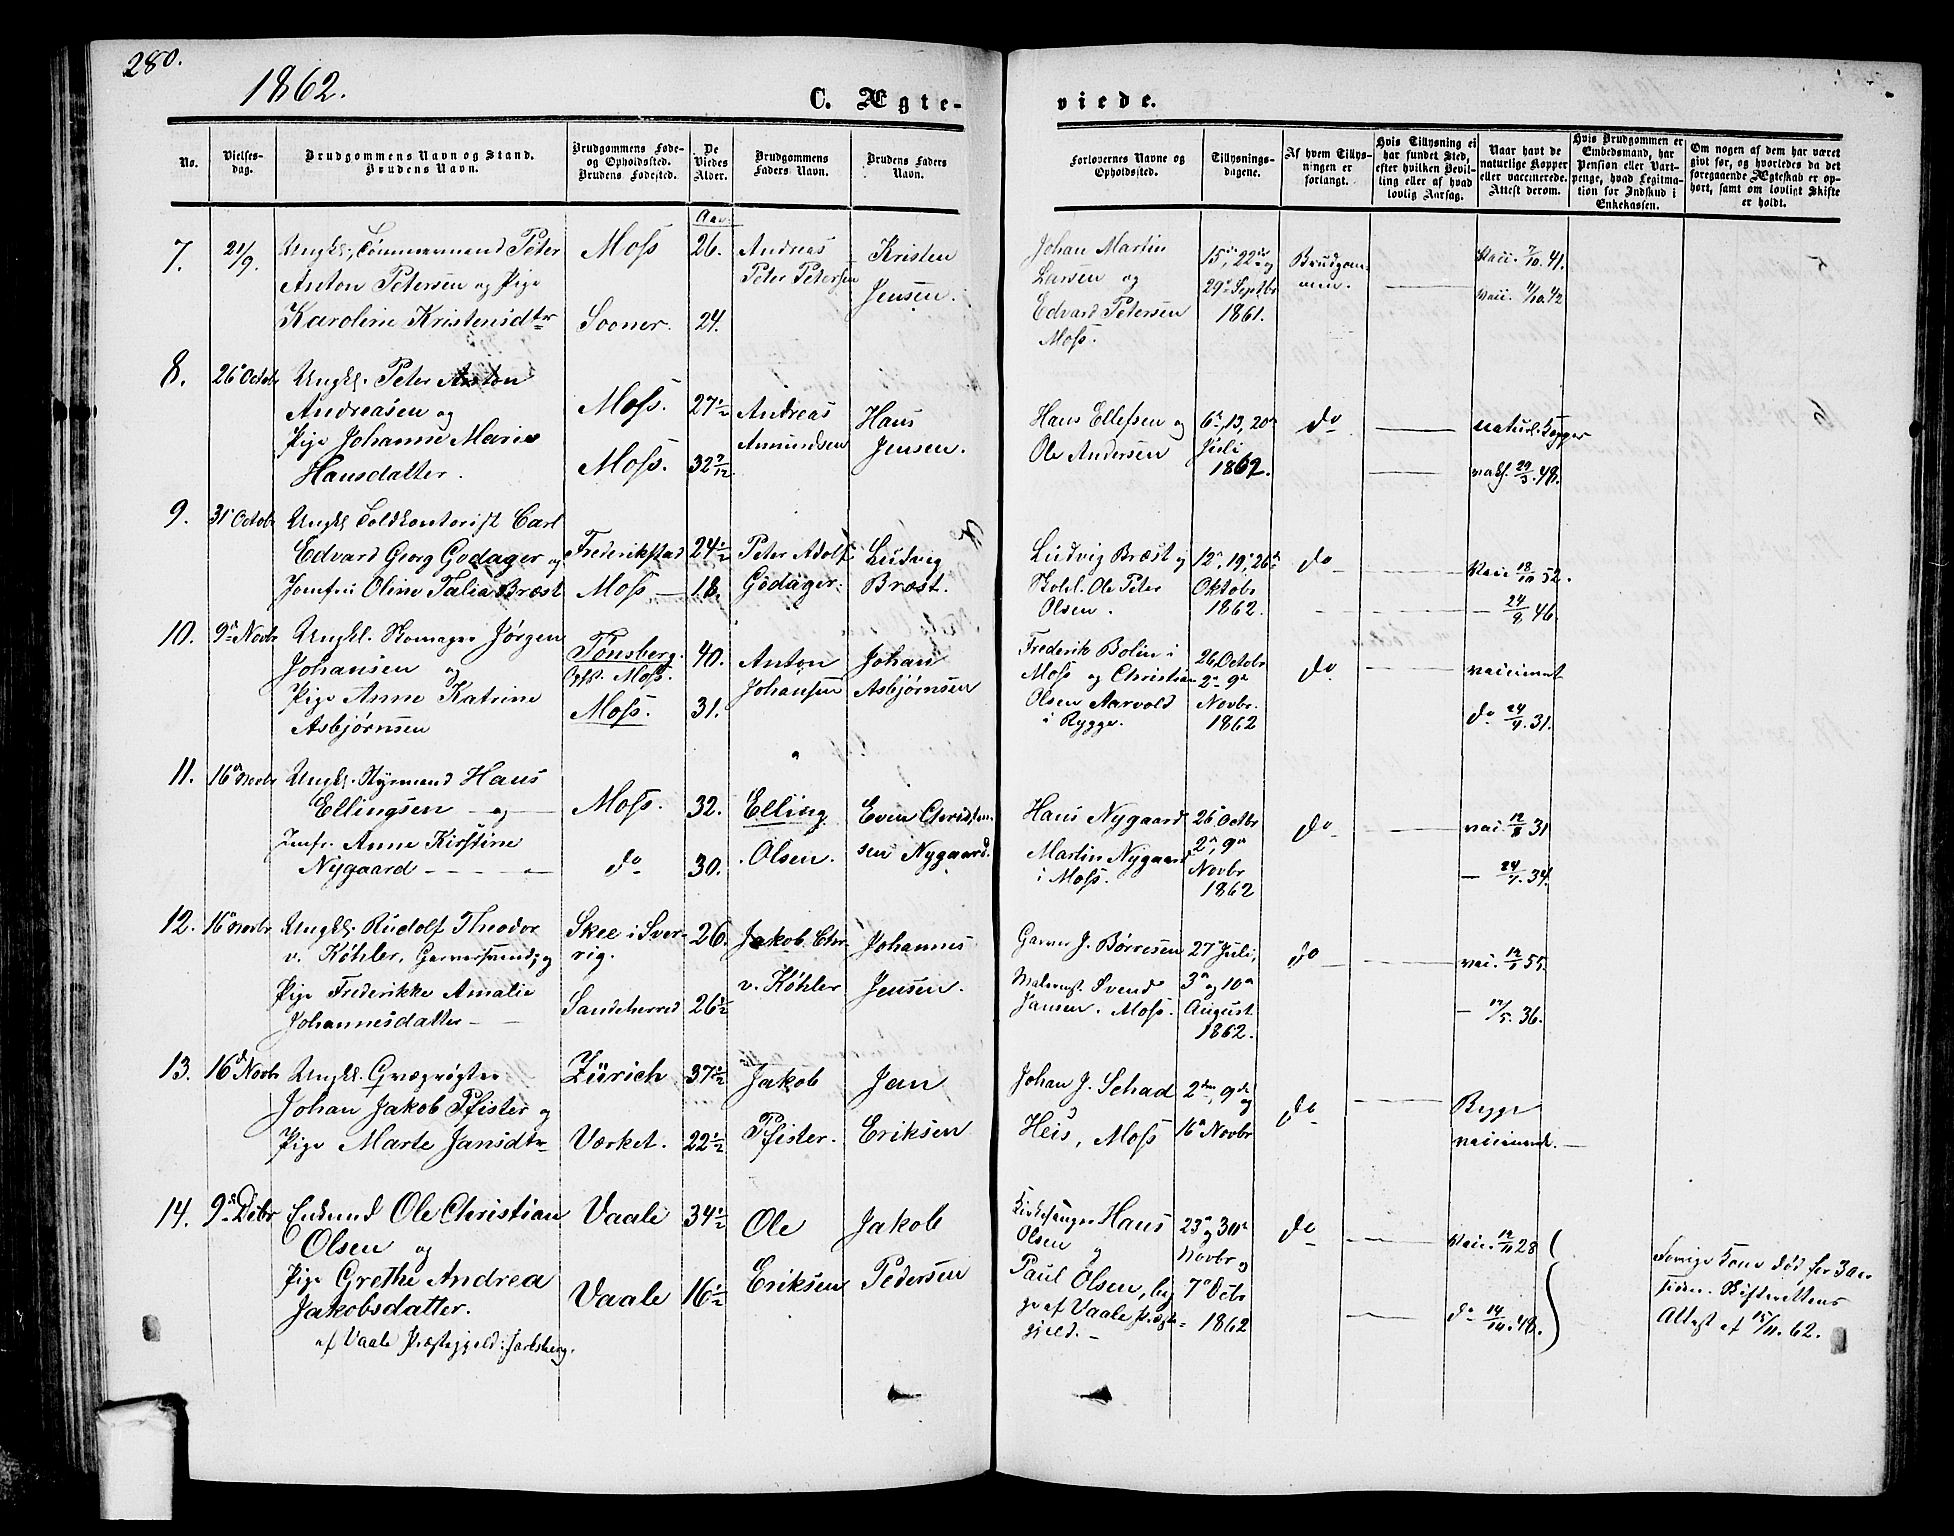 280.
1862.
C. Ægte-
viede.
No.
Vielses-
dag.
Brudgommens Navn og Stand.
Brudens Navn.
Brudgommens Føde-
og Opholdssted.
Brudens Fødested.
De
Viedes
Alder.
Brudgommens
Faders Navn.
Brudens Faders
Navn.
Forlovernes Navne og
Opholdssted.
Tillysnings-
dagene.
Af hvem Tillys-
ningen er
forlangt.
Hvis Tillysning ei
har fundet Sted,
efter hvilken Bevil-
ling eller af hvad
lovlig Aarsag.
Naar havt de
naturlige Kopper
eller vaccinerede.
Attest derom.
Hvis Brudgommen er
Embedsmand, har
Pension eller Vart-
penge, hvad Legitma-
tion for Indskud i
Enkekassen.
Om nogen af dem har været
givt før, og hvorledes da det
foregaaende Ægteskab er op-
hørt, samt om lovligt Skifte
er holdt.
Aar.
7. 21/9. Ungkl. Tømmermand Peter
Anton Petersen og Pige
Karoline Kristensdtr
Moss
Sooner.
26.
24.
Andreas
Peter Petersen
Kristen
Jensen.
Johan Martin
Larsen og
Edvard Petersen
Moss.
15de, 22de og
29de Septbr
1861.
Brudgom-
men.
Vacc. 7/10. 41.
vacc. 4/10. 42
8. 26 Octobr Ungkl. Peter Anton
Andreasen og
Pige Johanne Marie
Hansdatter.
Moss.
Moss.
27 1/2
32 7/12
Andreas
Amundsen
Hans
Jensen.
Hans Ellefsen og
Ole Andersen
6te, 13, 20de
Juli
1862.
do
naturl. Kopper
vaks. 29/5. 48.
9. 31 Octobr Ungkl Toldkontorist Carl
Edvard Georg Godager og
Jomfru Oline Talia Bræst
Frederikstad
Moss
24 1/2
18.
Peter Adolf
Godager.
Ludvig
Bræst.
Ludvig Bræst og
Skohl. Ole Peter
Olsen.
12te, 19, 26de
Oktobr
1862.
do
Vacc 18/10 52.
24/8. 46.
10. 9de Novbr Ungkl. Skomager Jørgen
Johansen og
Pige Anne Katrine
Asbjørnsen
Tønsberg.
Oph. Moss.
Moss.
40.
31.
Anton
Johansen
Johan
Asbjørnsen
Frederik Bolin i
Moss og Christian
Olsen Aarvold
i Rygge.
26 Octobr
2de 9de
Novbr.
1862
do
vaccineret
do 24/9. 31.
11. 16de Novbr Ungkl. Styrmand Hans
Ellingsen og
Jomfr. Anne Kirstine
Nygaard
Moss.
do
32.
30.
Elling
Olsen.
Even Christen-
sen Nygaard.
Hans Nygaard
Martin Nygaard
i Moss.
26 Octbr
2de, 9de
Novbr
1862
do
vac. 12/8 31
24/7. 34.
12. 16de Novbr Ungkl. Rudolf Theodor
v. Köhler, Garversvend, og
Pige Frederikke Amalie
Johannesdatter
Skee i Sver-
rig.
Sandeherred
26.
26 1/2
Jakob Chr
v. Köhler
Johannes
Jensen.
Garver J. Børresen
Malermst. Svend
Jansen. Moss.
27 Juli,
3de og 10de
August
1862.
do
vac. 12/5 55.
17/5. 36.
13. 16de Novbr Ungkl. Græsrøgter
Johan Jakob Pfister og
Pige Marte Jansdtr
Zürich
Værket.
37 1/2
22 1/2
Jakob
Pfister.
Jan
Eriksen
Johan J. Schad
Heis, Moss
2den, 9de og
16de Novbr
do
Begge
vaccinerede.
14. 9de Debr Enkmd Ole Christian
Olsen og
Pige Grethe Andrea
Jakobsdatter.
af Vaale Præstegjeld: Jarlsberg.
Vaale
Vaale
34 1/2
16 1/2
Ole
Eriksen
Jakob
Pedersen
Kirkesanger Hans
Olsen og
Paul Olsen, beg
ge af Vaale Præste-
gjeld.
23de og 30te
Novbr og
7de Debr
1862
do
Vacc. 12/11 28
do 14/10. 48.
Forrige Kone død for 3 Aar
siden. Skifterettens
Attest af 15/11. 62.